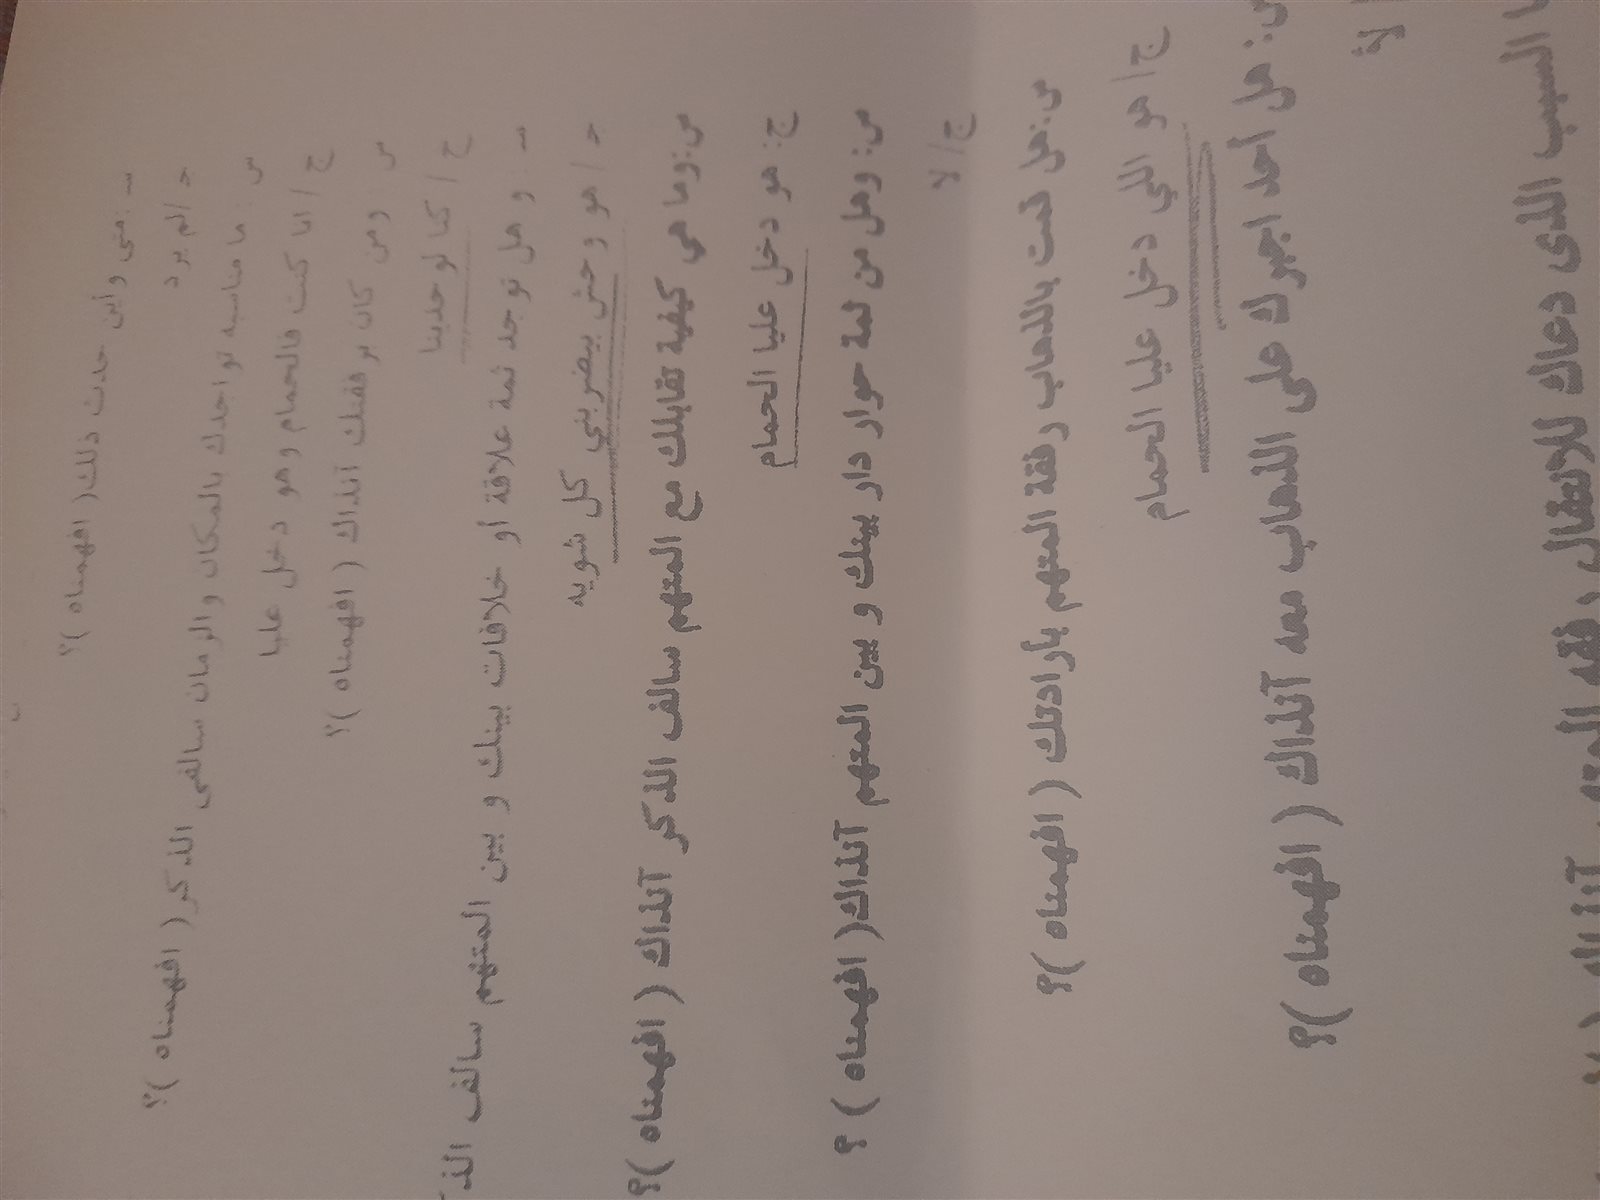 س: متى وأين حدث ذلك( افهمناه )؟
ج/ لم يرد
س: ما مناسبه تواجدك بالمكان والزمان سالفى الذكر( افهمناه )؟
ج/ انا كنت فالحمام وهو دخل عليا
س: ومن كان برفقتك آنذاك ( افهمناه )؟
ج/ كنا لوحدينا
س: وهل توجد ثمة علاقة أو خلافات بينك و بين المتهم سالف الذ
ج/ هو وحش بيضربني كل شويه
س: وما هي كيفية تقابلك مع المتهم سالف الذكر آنذاك ( افهمناه )؟
ج: هو دخل عليا الحمام
س: وهل من ثمة حوار دار بينك و بين المتهم آنذاك( افهمناه ) ؟
ج/ لا
س: هل قمت بالذهاب رفقة المتهم بأرادتك ( افهمناه )؟
ج/ هو اللي دخل عليا الحمام
س: هل أحد اجبرك على الذهاب معه آنذاك ( افهمناه )؟
لا
ا السبب الذى دعاك للانتقال رفقه المتهم آنذاك (